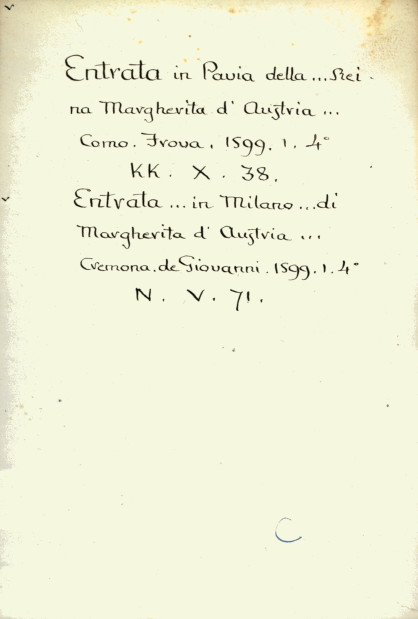 Entrata in Pavia della ... Rei-
na Margherita d' Auʒtria ...
Como. Frova. 1599. 1. 4°
KK. X. 38.
Entrata ... in Milano ... di
Margherita d' Auʒtria ...
Cremona. de Giovanni. 1599. 1. 4°
N. V. 71.
C